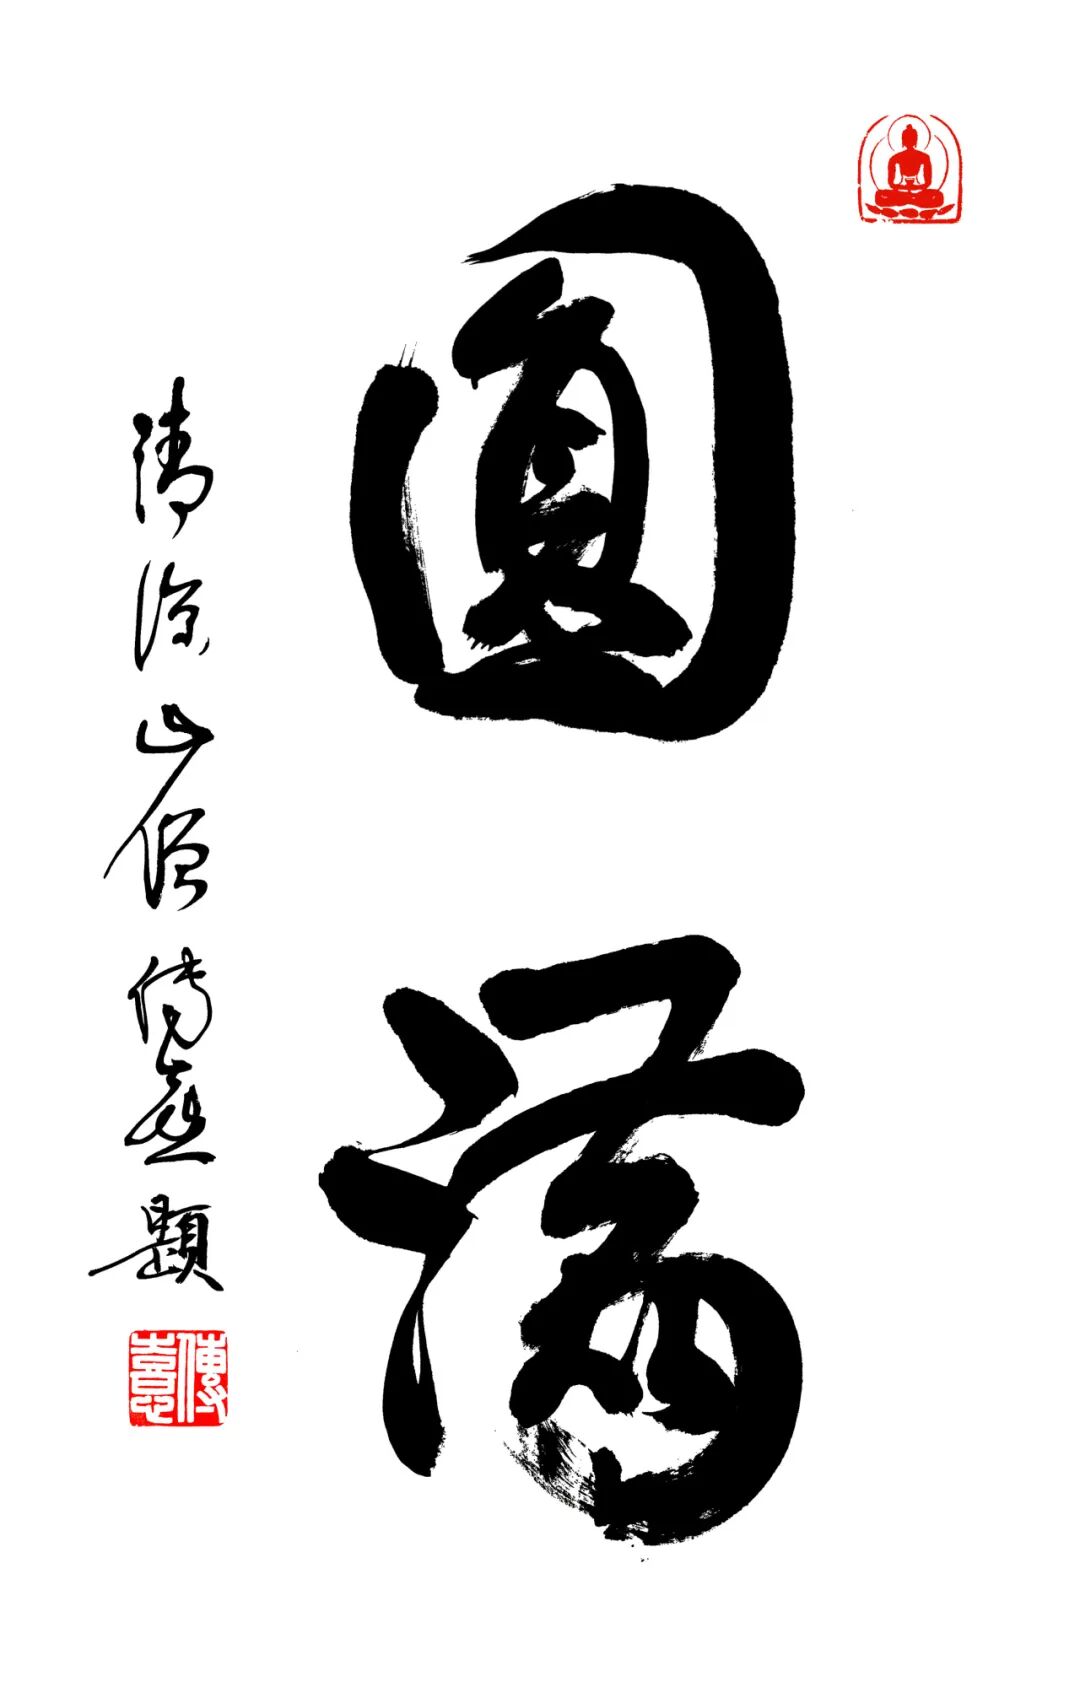 圓滿
清涼山僧傳憙題
傳憙